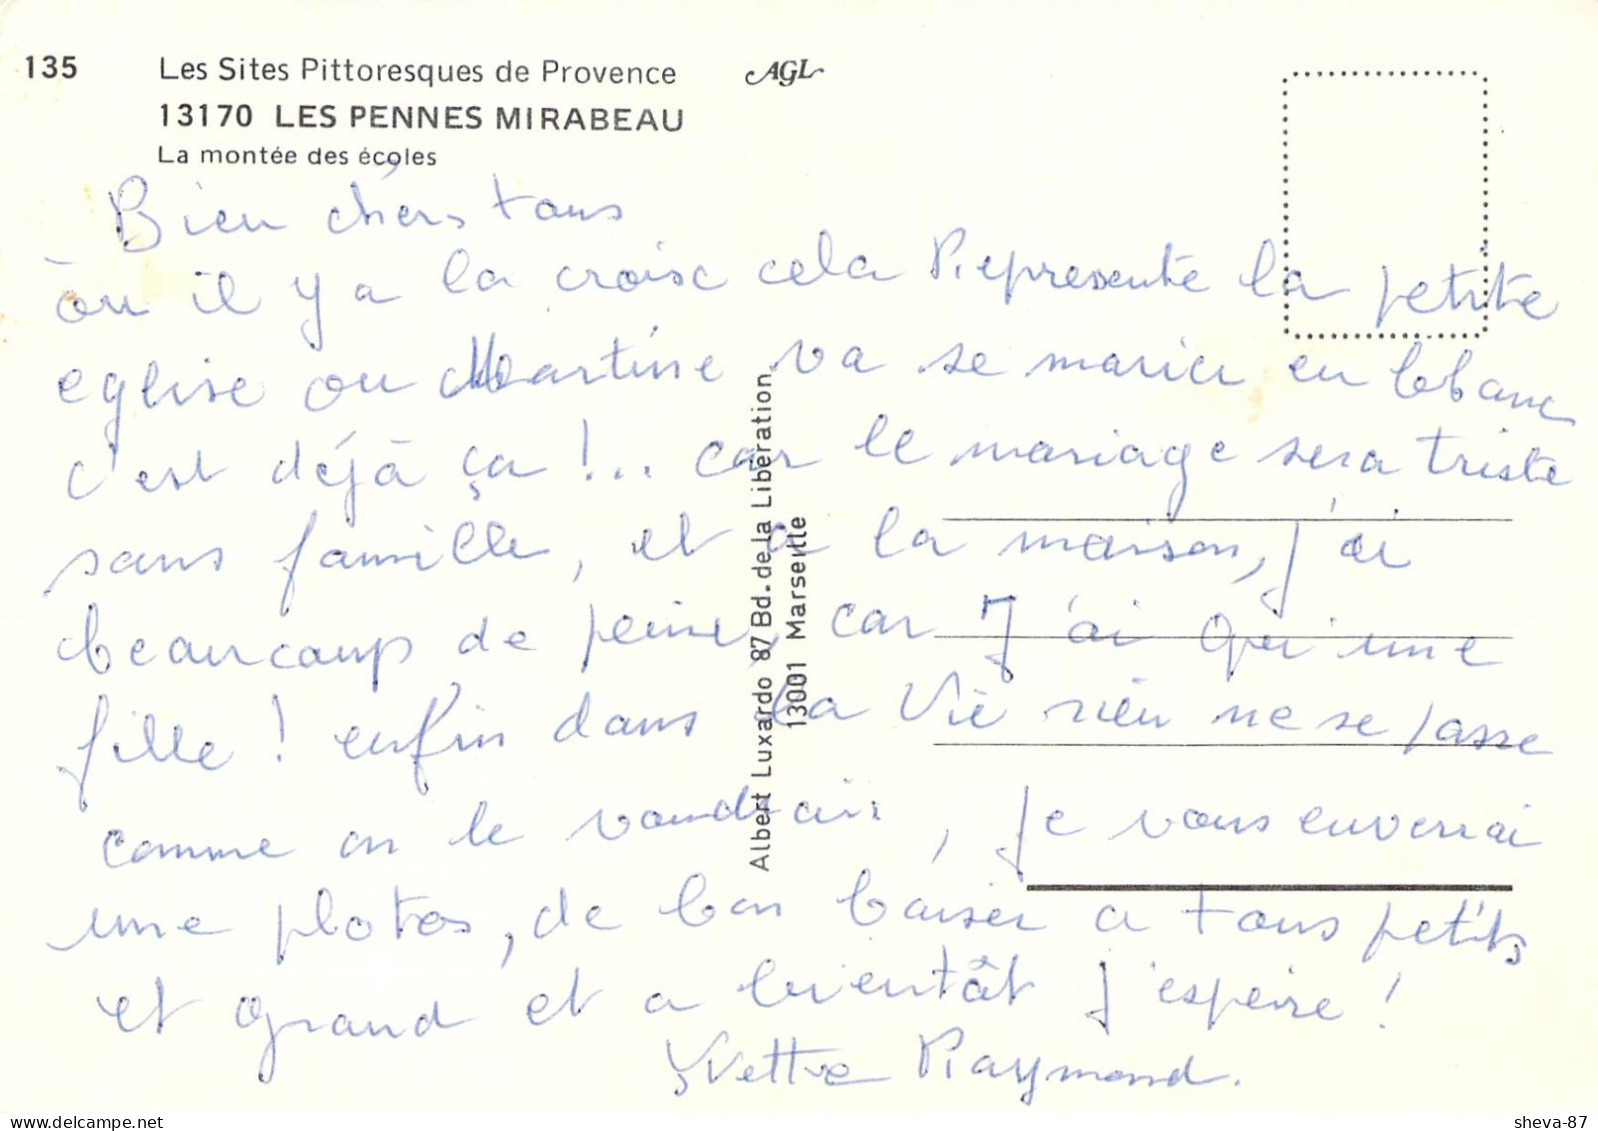 135 Les Sites Pittoresques de Provence AGL
13170 LES PENNES MIRABEAU
La montée des écoles
Bien chers tous
ou il y a la croix cela Represente la petite
eglise ou Martine va se marier en blanc
c'est déjà ça !.. car le mariage sera triste
sans famille, et à la maison, j'ai
beaucoup de peine, car J'ai qu'une
fille ! enfin dans la vie rien ne se passe
comme on le voudrais, je vous enverrai
une photos, de bon baiser a tous petits
et grand et a bientât j'espère !
Yvette Raymond.
Albert Luxardo 87 Bd. de la Libération
13001 Marseille
sheva-87